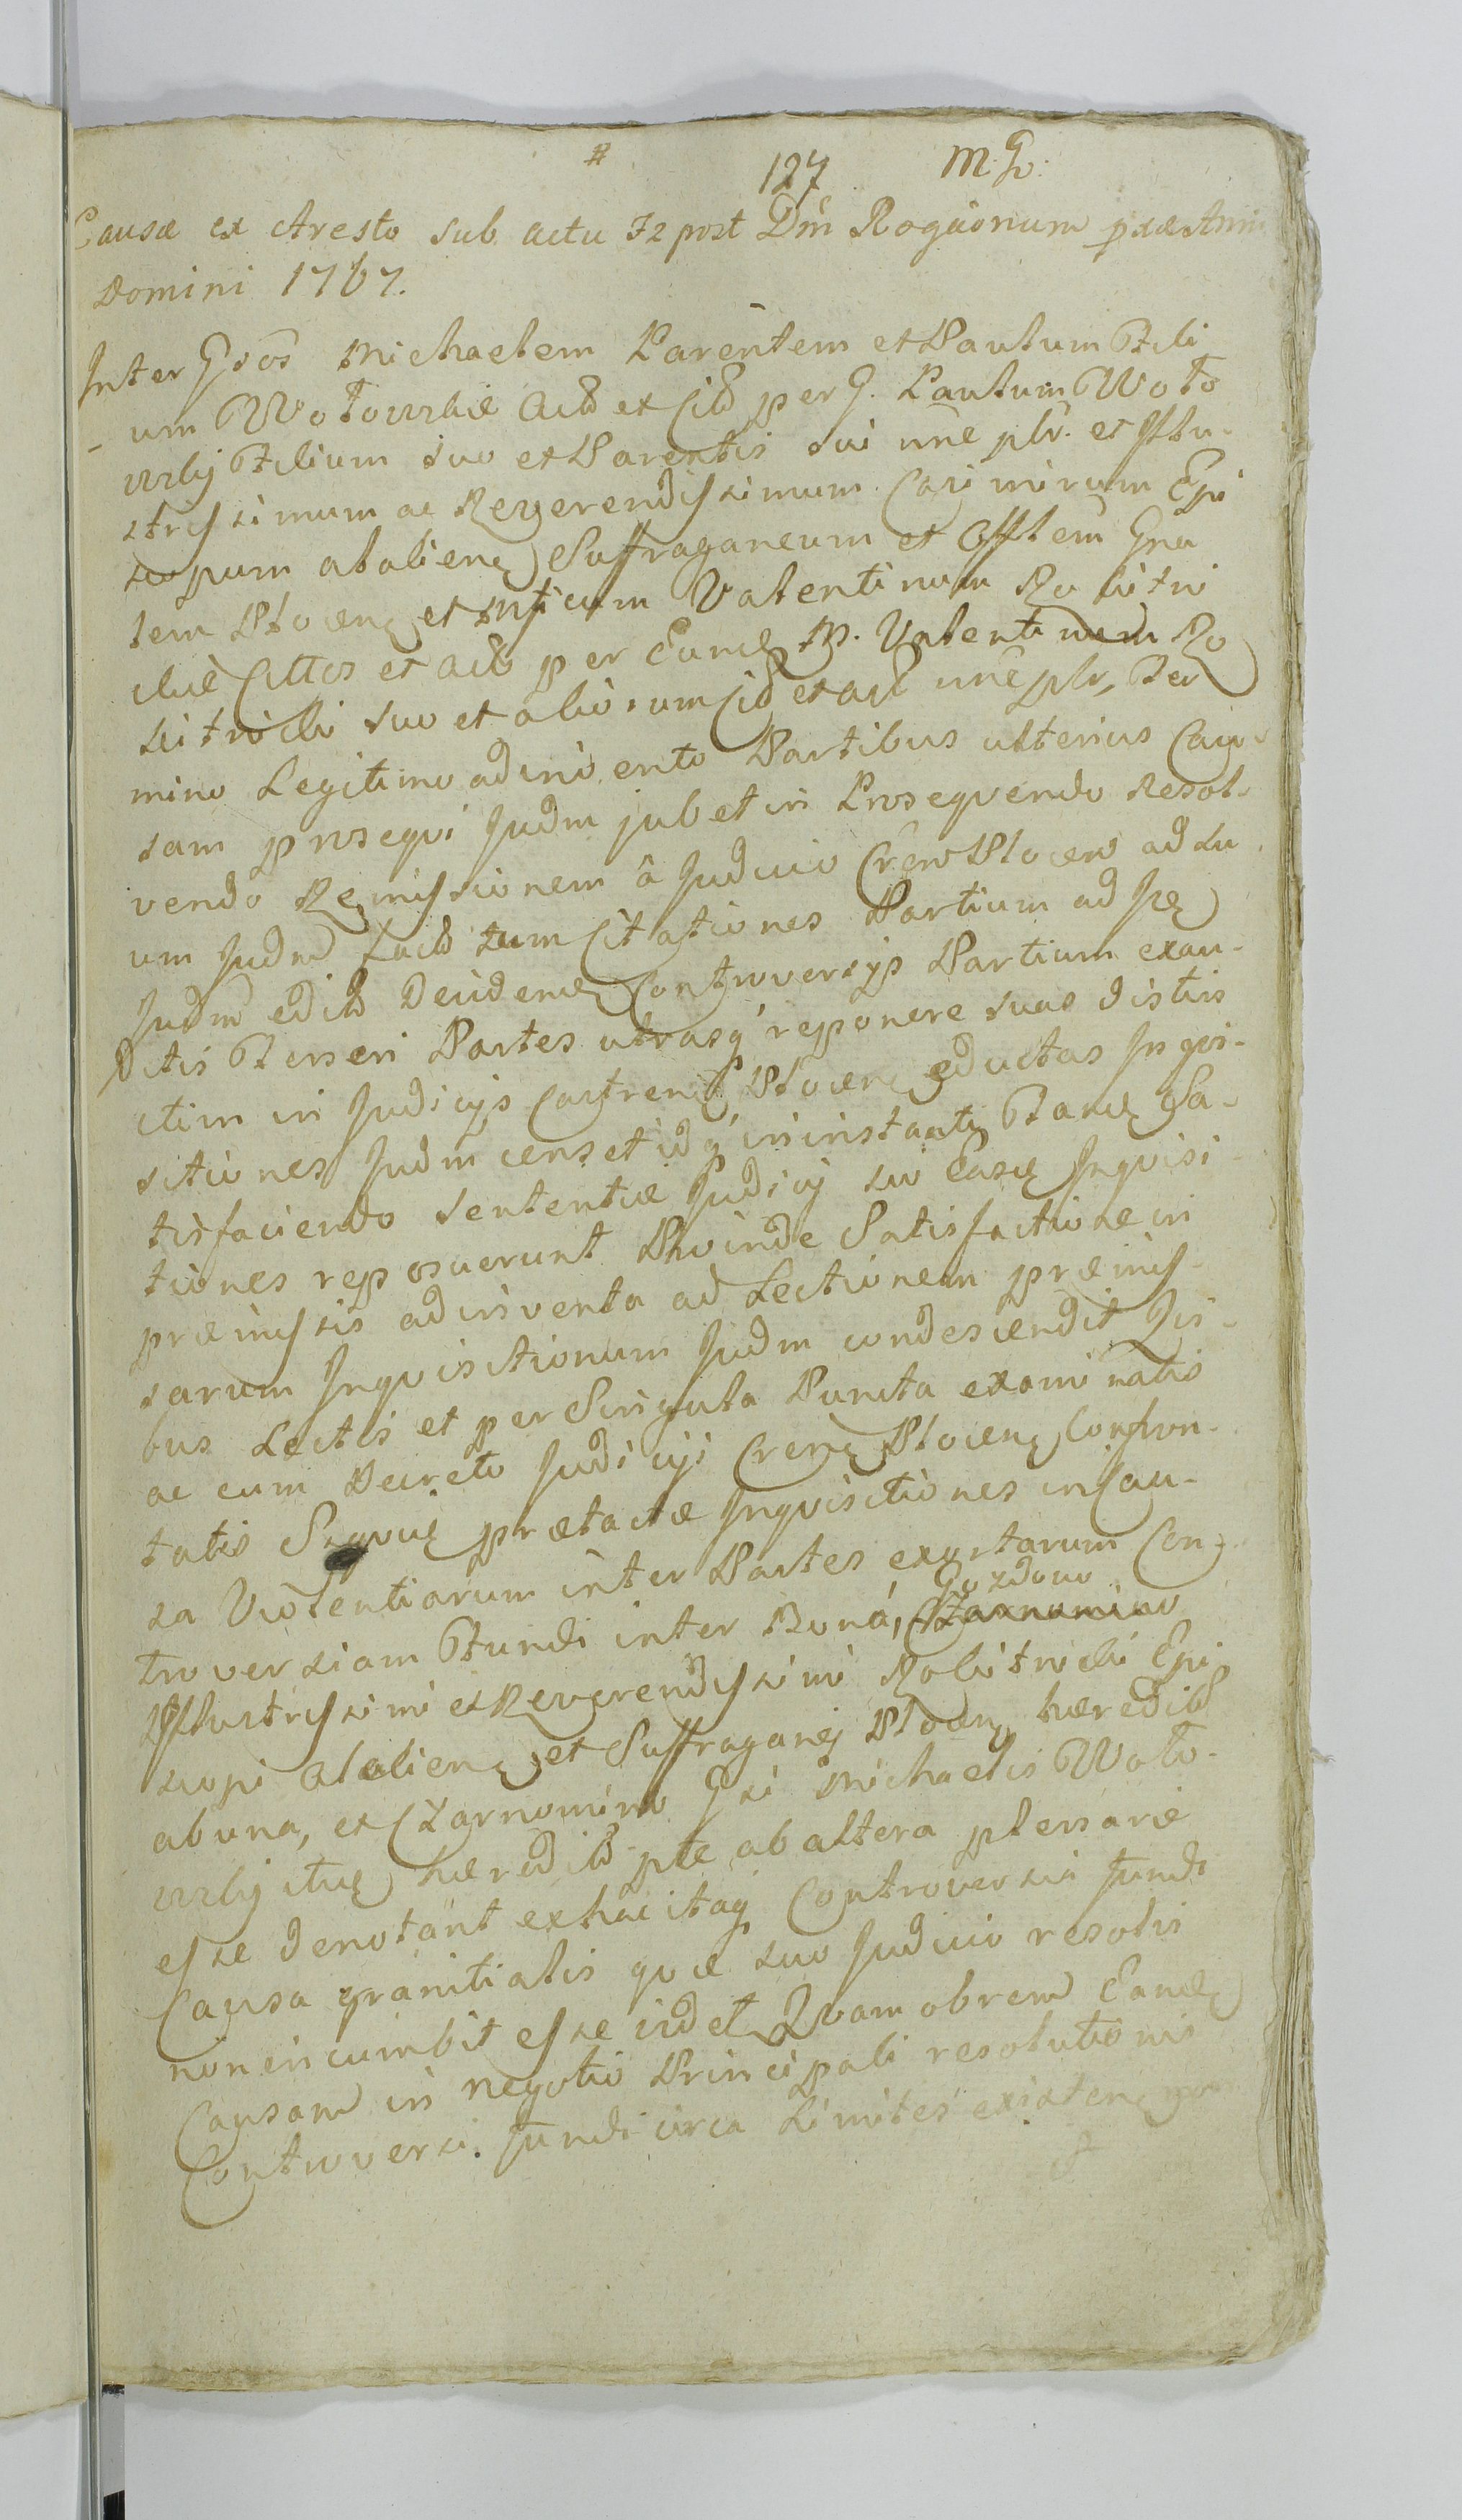 #
127 M. G:
Causæ ex Aresto sub actu F2 post Dm̄ Rogãonum
Domini 1767.
Inter Gsōs Michaelem Parentem et Paulum Fili
um Woto Act et Cit per G. Paulum Woto
Filium suo et Parentis sui nn̄e plr. et Illu-
strissimum ac Reverendissimum Casimirum Epi
scopum Suffraganeum et Offlem Gna
lem Plocen et Mficum Valentinum Ro
Cittos et act per Eund M. Valentinum Ro
suo et aliorum Cit et act nn̄e plr, Ter
mino Legitimo adinvento Partibus ulterius Cau-
sam prosequi Judm jubet in Prosequendo Resol-
vendo Remissionem â Judicio Cren Plocen ad Su
um Judm tum Citationes Partium ad
Judm Controversijs Partium exau-
ditis Partes utrasq reponere suas distin
ctim in Judicijs Castren Plocen eductas Inqvi-
sitiones Judm censet idq in instanti Sa-
tisfaciendo sententiæ Judicij sui Easd Inqvisi-
tiones reposuerunt Proinde Satisfactione in
præmissis adinventa ad Lectionem præmis-
sarum Inqvisitionum Judm condescendit Qui-
bus Lectis et per Singula Puncta examinatis
ac cum Decreto Judicij Cren Plocen Confron-
tatis prætactæ Inqvisitiones in Cau-
sa Violentiarum inter Partes exortarum Con-
Gozdowo
troversiam Fundi inter Bona, Czarnomino
Illustrissimi et Reverendissimi Epi
scopi et Suffraganej Plocen hæredit
ab una, et Czarnomino Gsi Michaelis Woto-
hæredit pte ab altera plenarie
esse denotant ex hac itaq Controversia fundi
Causa granitialis qvæ suo Judicio resolvi
non incumbit esse videt, Qvam obrem Eand
Causam in negotio Principali resolutionis
Controversi fundi circa Limites existen